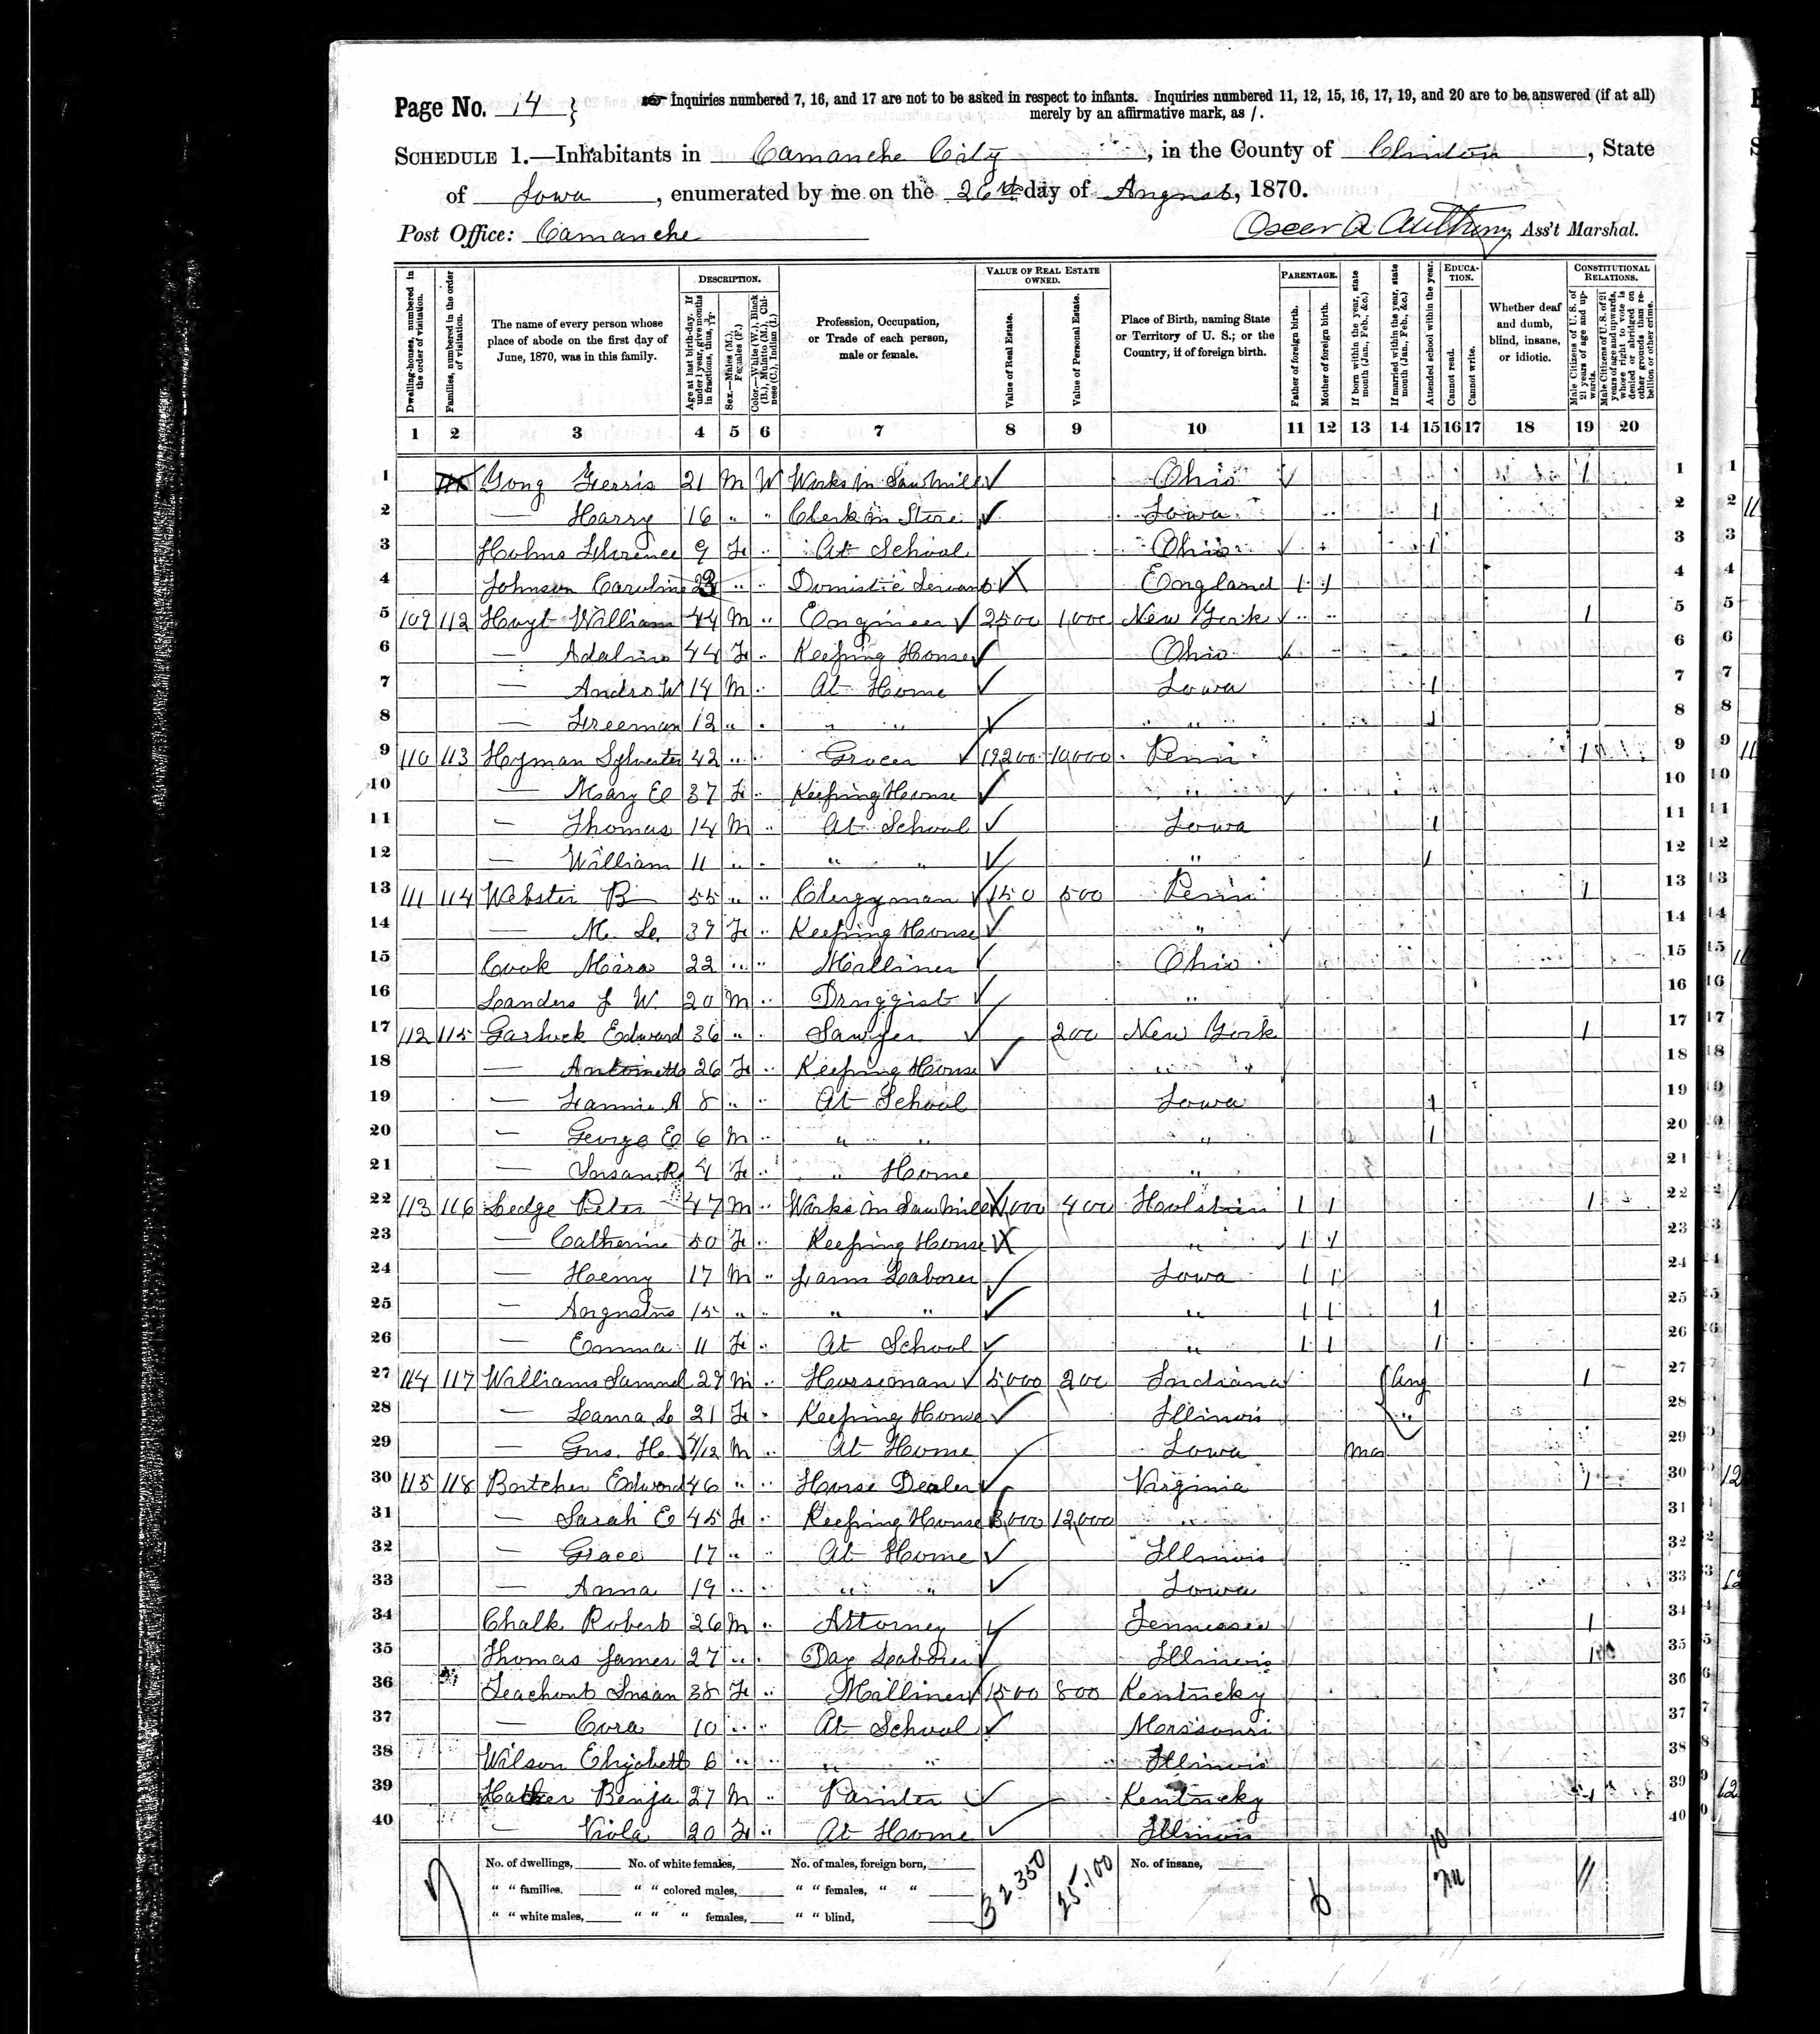 Page No. 14
Inquiries numbered 7, 16, and 17 are not to be asked in respect to infants. Inquiries numbered 11, 12, 15, 16, 17, 19, and 20 are to be answered (if at all)
merely by an affirmative mark, as /.
SCHEDULE 1.—Inhabitants in Camanche City, in the County of Clinton, State
of Iowa, enumerated by me on the 26th day of August, 1870.
Post Office: Camanche
Oscar A Anthony, Ass't Marshal.
DESCRIPTION.
VALUE OF REAL ESTATE OWNED.
PARENTAGE.
EDUCATION.
CONSTITUTIONAL RELATIONS.
Dwelling-houses, numbered in the order of visitation.
Families, numbered in the order of visitation.
The name of every person whose place of abode on the first day of June, 1870, was in this family.
Age at last birth-day. If under 1 year, give months in fractions, thus, 3/12.
Sex.—Males (M.), Females (F.)
Color.—White (W.), Black (B.), Mulatto (M.), Chinese (C.), Indian (I.)
Profession, Occupation, or Trade of each person, male or female.
Value of Real Estate.
Value of Personal Estate.
Place of Birth, naming State or Territory of U. S.; or the Country, if of foreign birth.
Father of foreign birth.
Mother of foreign birth.
If born within the year, state month (Jan., Feb., &c.)
If married within the year, state month (Jan., Feb., &c.)
Attended school within the year.
Cannot read.
Cannot write.
Whether deaf and dumb, blind, insane, or idiotic.
Male Citizens of U. S. of 21 years of age and upwards.
Male Citizens of U. S. of 21 years of age and upwards, whose right to vote is denied or abridged on other grounds than rebellion or other crime.
1 2 3 4 5 6 7 8 9 10 11 12 13 14 15 16 17 18 19 20
1 21 M W Works in Sawmill Ohio 1 1
2 — Harry 16 " " Clerk in Store Iowa 1 2
3 Florence 9 F " At School Ohio 1 3
4 Johnson Caroline " " Domistic Servant England 1 1 4
5 109 112 Hoyt William 44 M " Engineer 2500 1,000 New York 1 5
6 — Adaline 44 F " Keeping House Ohio 6
7 — Andro W 14 M " At Home Iowa 1 7
8 — Freeman 12 " " " " " " 1 8
9 110 113 Hyman Sylvester 42 " " Grocer 19200 10,000 Penn 1 9
10 — Mary E 37 F " Keeping House " 10
11 — Thomas 14 M " At School Iowa 1 11
12 — William 11 " " " " " 1 12
13 111 114 Webster B 55 " " Clergyman 150 500 Penn 1 13
14 — M. L. 39 F " Keeping House " 14
15 Cook 22 " " Milliner Ohio 15
16 Landers J W. 20 M " Druggist " 16
17 112 115 Edward 36 " " Sawyer 200 New York 1 17
18 — Antoinette 26 F " Keeping House " " 18
19 — Fannie A 8 " " At School Iowa 1 19
20 — George E 6 M " " " " 1 20
21 — Susan R 4 F " " Home " 21
22 113 116 Ledge Peter 47 M " Works in Sawmill 1,000 400 Holstein 1 1 1 22
23 — Catherine 50 F " Keeping House " 1 1 23
24 — Henry 17 M " Farm Laborer Iowa 1 1 24
25 — Augustus 15 " " " " " 1 1 1 25
26 — Emma 11 F " At School " 1 1 1 26
27 114 117 Williams Samuel 29 M " Horseman 5,000 200 Indiana Aug 1 27
28 — Laura L 21 F " Keeping House Illinois " 28
29 — Gus. H. M " At Home Iowa Mar 29
30 115 118 Edward 46 " " Horse Dealer Virginia 1 30
31 — Sarah E 45 F " Keeping House 3,000 12,000 " 31
32 — Grace 17 " " At Home Illinois 32
33 — Anna 19 " " " " Iowa 33
34 Chalk Robert 26 M " Attorney Tennessee 1 34
35 Thomas James 27 " " Day Laborer Illinois 1 35
36 Teachout Susan 38 F " Milliner 1500 800 Kentucky 36
37 — Cora 10 " " At School Missouri 37
38 Wilson Elizabeth 6 " " " " Illinois 38
39 Benja 27 M " Painter Kentucky 1 39
40 — Viola 20 F " At Home Illinois 40
No. of dwellings, No. of white females, No. of males, foreign born, No. of insane,
" " families. " " colored males, " " females, " "
" " white males, " " " females, " " blind,
32350 25.100 6 10 11